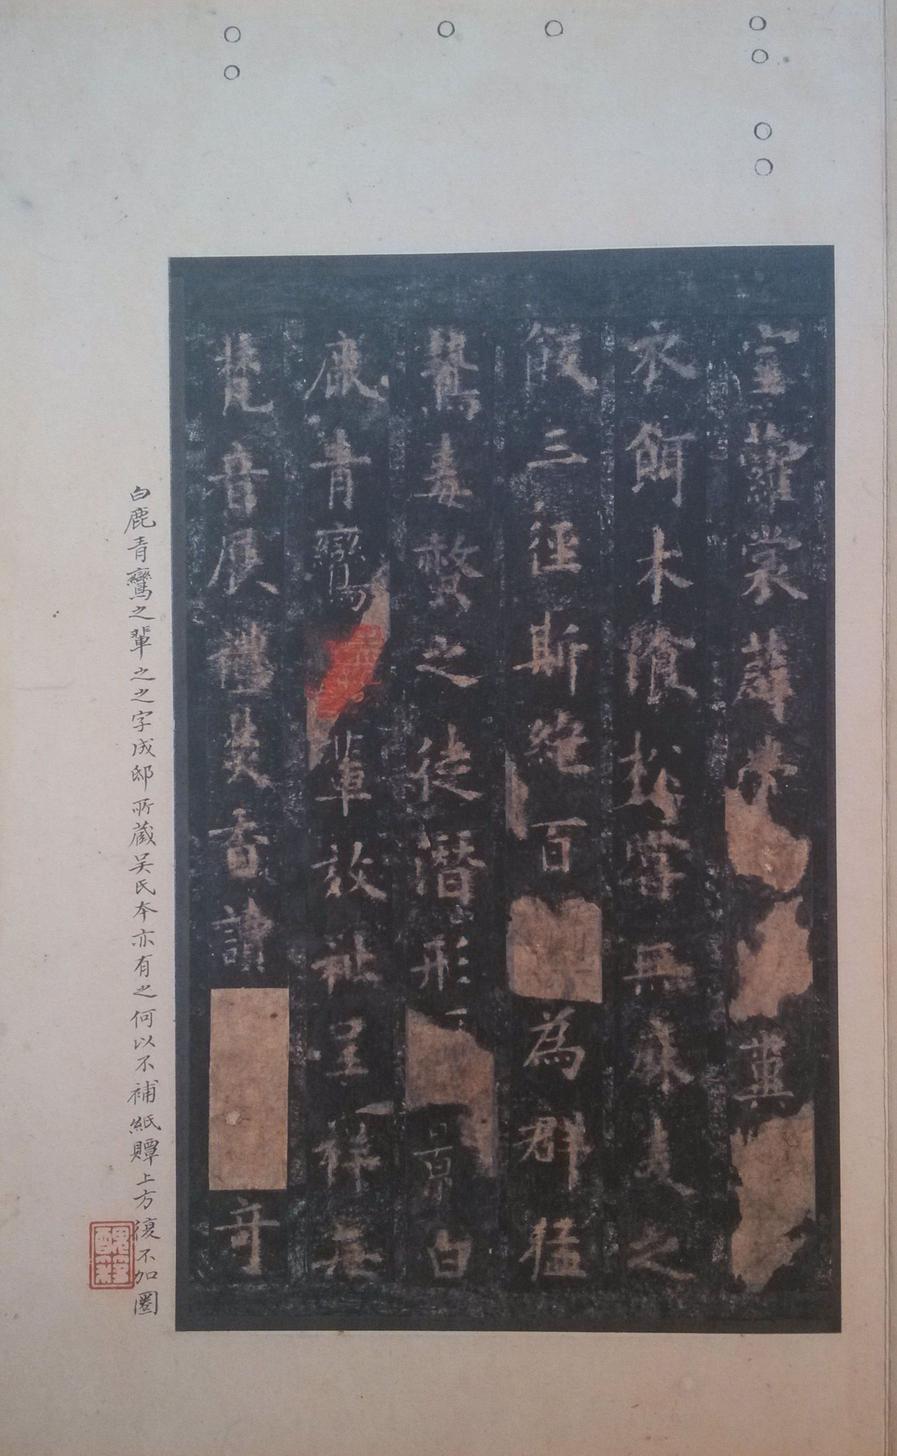 室蘿裳薜帶冀
衣餌木飡松嘗無麻麦之
飯三徑斯絶百為群猛
鷙毒螫之徒潛形景白
鹿青鸞輩效祉呈祥無
梵音展禮焚香讀奇
白鹿青鸞之輩之之字成邸所藏吴氏本亦有之何以不補紙贉上方復不加圈